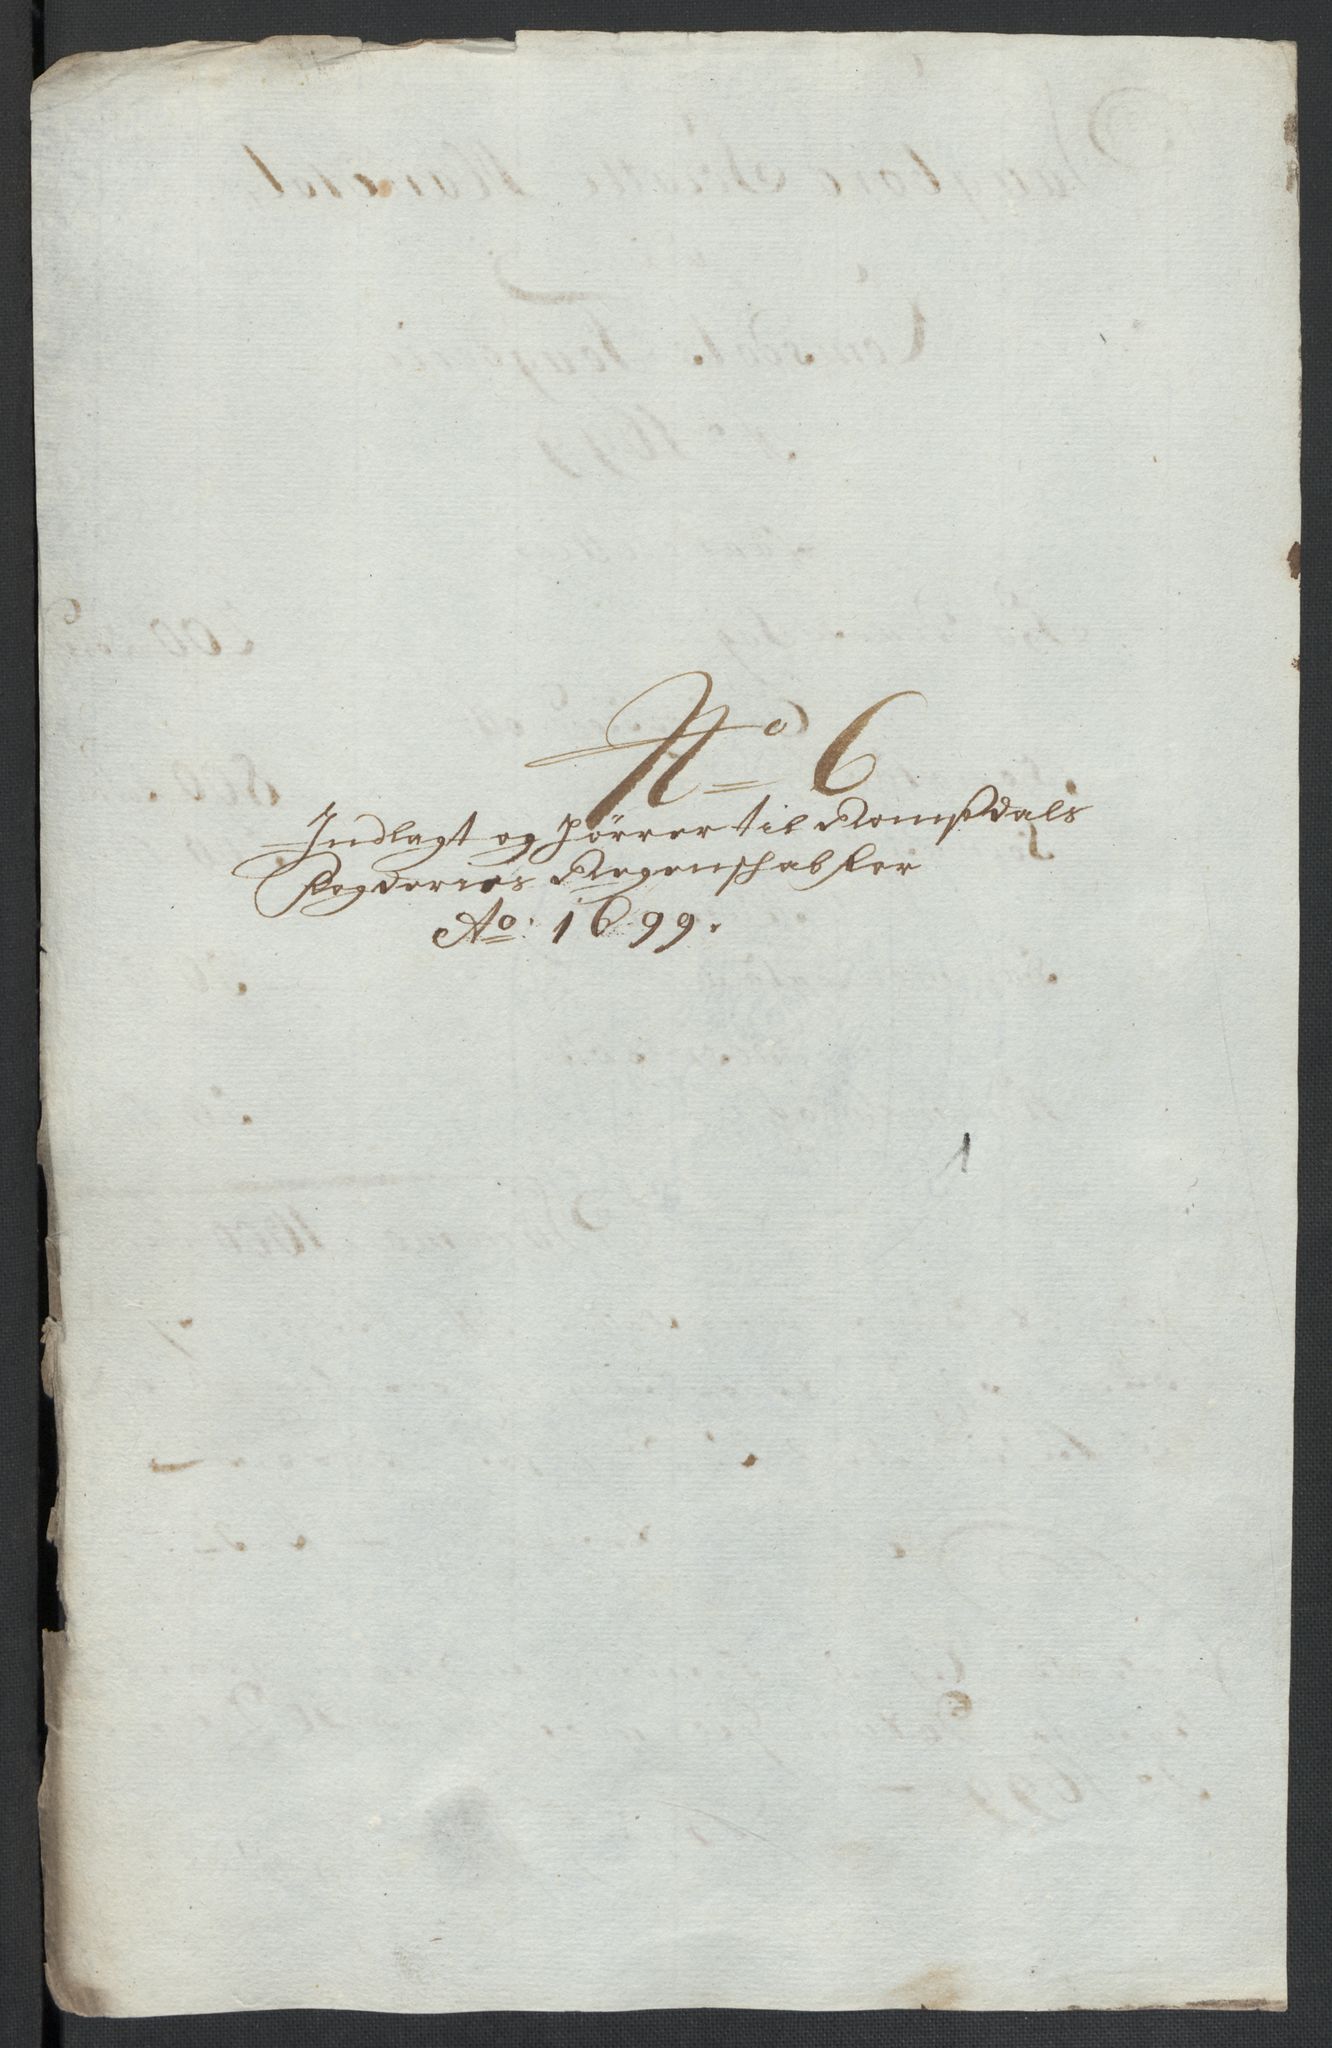 No 6
Indlagt og hörrer til Romßdals
Fogderies Regenschabfer
Ao: 1699.
1